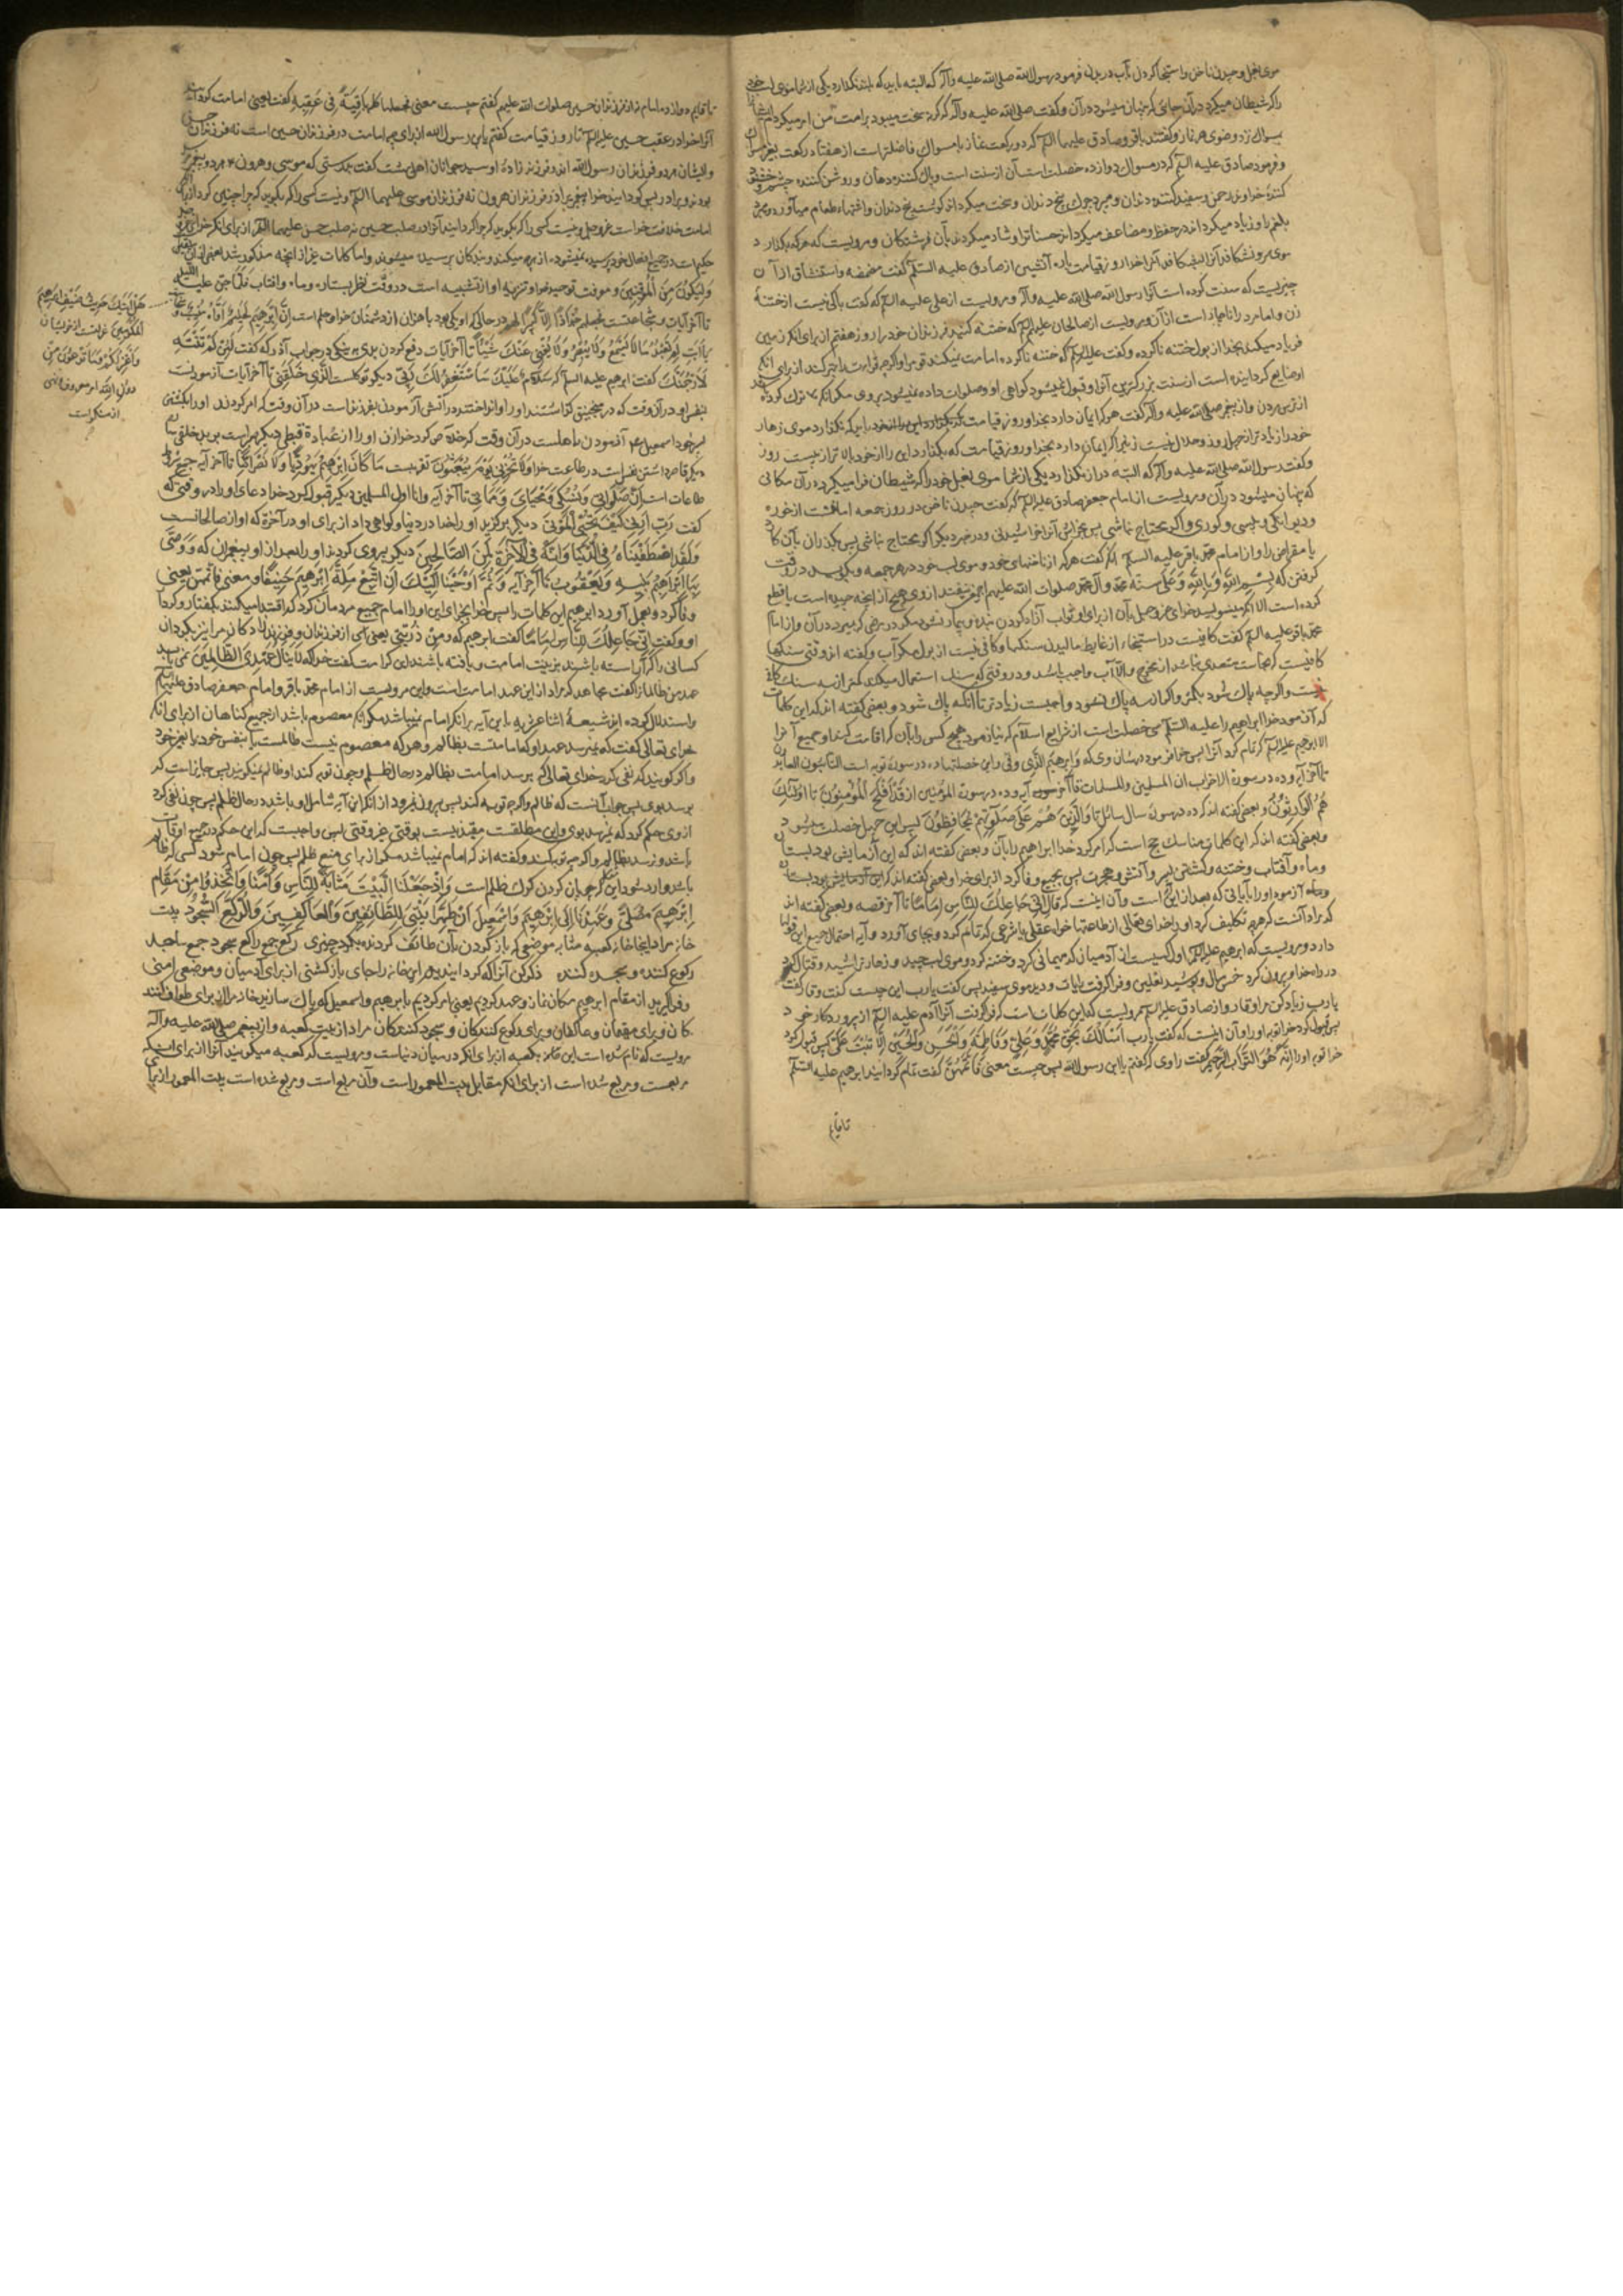 موی بغل و چیدن ناخن و استنجا کردن بآب در بدن فرمود رسول الله صلی الله علیه وآله که البته باید که بلند نگذارد یکی از شما موی لب خود
را که شیطان میگیرد در آن جائی که پنهان میشود در آن و گفت صلی الله علیه وآله که اگر نه سخت میبود بر امت من امر میکردم
بمسواک نزد وضوی هر نماز و گفتند باقر و صادق علیهما السلم که دو رکعت نماز با مسواک فاضلتر است از هفتاد رکعت بغیر مسواک
و فرمود صادق علیه السلم که در مسواک دوازده خصلت است آن از سنت است و پاک کننده دهان و روشن کننده چشم و خشنود
کننده خداوند رحمن و سفید کننده دندان و میبرد چرک بیخ دندان و سخت میگرداند گوشت بیخ دندان و اشتهاء طعام می‌آورد و میبرد
بلغم را و زیاد میگرداند در حفظ و مضاعف میگرداند حسنات را و شاد میگردند بآن فرشتگان و مرویست که هر که بگذارد
موی سر و نشکافد آنرا بشکافد آنرا خدا روز قیامت باره آتشین از صادق علیه السلم گفت مضمضه و استنشاق از آن
چیزیست که سنت کرده است آنرا رسول الله صلی الله علیه وآله و مرویست از علی علیه السلم که گفت باکی نیست از ختنهٔ
زن و اما مرد را ناچار است از آن و مرویست از صالحان علیهم السلم که ختنه کنید فرزندان خود را روز هفتم از برای انکه زمین
فریاد میکند بخدا از بول ختنه ناکرده و گفت علی علیه السلم که ختنه ناکرده امامت نمیکند قوم را و اگر چه قرائت داند از برای انکه
او ضایع گردانیده است از سنت بزرگترین آنرا و قبول نمیشود گواهی او و صلوات داده نمیشود بر وی مگر انکه ترک کرده
از ترس مردن و از پیغمبر صلی الله علیه وآله گفت هر که ایمان دارد بخدا و روز قیامت که نگذارد موی زهار
خود را زیادتر از چهل روز و حلال نیست زنی را که ایمان دارد بخدا و روز قیامت که بگذارد این را از خود بالاتر از بیست روز
و گفت رسول الله صلی الله علیه وآله که البته دراز نگذارد یکی از شما موی بغل خود را که شیطان فرا میگیرد در آن مکانی
که پنهان میشود در آن و مرویست از امام جعفر صادق علیه السلم که گفت چیدن ناخن در روز جمعه امانست از خوره
و دیوانگی و پیسی و کوری و اگر محتاج نباشی پس بخراش آنرا خراشیدنی و در خبر دیگر اگر محتاج نباشی پس بگذران بآن کارد
یا مقراض را و از امام محمد باقر علیه السلم انکه گفت هر که از ناخنهای خود و موی لب خود در هر جمعه و بگوید در وقت
گرفتن که بسم الله و بالله و علی سنة محمد وآل محمد صلوات الله علیهم اجمعین نیفتد از وی هیچ از انچه چیده است یا قطع
کرده است الا انکه مینویسد خدای عز وجل بآن از برای او ثواب آزاد کردن بنده و بیمار نشود مگر در مرضی که میرد در آن و از امام
محمد باقر علیه السلم گفت کافیست در استنجاء از غایط مالیدن سنگها و کافی نیست از بول مگر آب و گفته اند وقتی سنگها
کافیست که نجاست متعدی نباشد از مخرج والا آب واجب باشد و در وقتی که سنگ استعمال میکند کمتر از سه سنگ کافی
نیست و اگر چه پاک شود بکمتر و اگر از سه پاک نشود واجبست زیادتر تا انکه پاک شود و بعضی گفته اند که این کلمات
که آزمود خدا ابراهیم را علیه السلم سی خصلت است از شرایع اسلام که نیازمود هیچ کس را بآن که اقامت کند او جمیع آنرا
الا ابرهیم علیه السلم که تمام کرد آنرا پس خدا فرمود در شان وی که وابرهیم الذی وفی و این خصلتها ده در سورة توبه است التائبون العابدون
تا آخر آیه و ده در سورة الاحزاب ان المسلمین والمسلمات تا آخر آیه و ده در سورة المؤمنین از قَدْ اَفْلَحَ الْمُؤْمِنُونَ تا اولٰئِكَ
هُمُ الْوَارِثُونَ و بعضی گفته اند که ده در سورت سال سائل تا وَالَّذِینَ هُمْ عَلَی صَلٰوتِهِمْ یُحَافِظُونَ پس این چهل خصلت میشود
و بعضی گفته اند که این کلمات مناسک حج است که امر کرد خدا ابراهیم را بآن و بعضی گفته اند که این آزمایش بود بستاره
و ماه و آفتاب و ختنه و کشتن پسر و آتش و هجرت پس بجمیع وفا کرد از برای خدا و بعضی گفته اند
آزمود او را بآیاتی که بعد از این است و آن اینست که قَالَ اِنّی جَاعِلُكَ لِلنَّاسِ اِمَامًا تا آخر قصه و بعضی گفته اند
که مراد آنست که هر چه تکلیف کرد او را خدای تعالی از طاعتها خواه عقلی یا شرعی که تمام کرد و بجای آورد و آیه احتمال جمیع این قولها
دارد و مرویست که ابرهیم علیه السلم اول کسیست از آدمیان که مهمانی کرد و ختنه کرد و موی لب چید و زهار تراشید و قتال کرد
در راه خدا و بیرون کرد خمس مال و پوشید نعلین و فرا گرفت رایات و دید موی سفید پس گفت یارب این چیست گفت وقار گفت
یارب زیاد کن مرا وقار و از صادق علیه السلم مرویست که این کلمات است که فرا گرفت آنرا آدم علیه السلم از پروردگار خود
پس قبول کرد خدا توبه او را و آن اینست که گفت یارب اَسْاَلُكَ بِحَقِّ مُحَمَّدٍ وَعَلِیٍّ وَفَاطِمَةَ وَالْحَسَنِ وَالْحُسَیْنِ اِلَّا تُبْتَ عَلَیَّ پس قبول کرد
خدا توبه او را اِنَّهُ هُوَ التَّوَّابُ الرَّحِیمُ گفت راوی که گفتم یا ابن رسول الله پس چیست معنی فَاَتَمَّهُنَّ گفت تمام گردانید ابرهیم علیه السلم
تا قایم
تا قایم دوازده امام نه از فرزندان حسین صلوات الله علیهم گفتم چیست معنی وجعلها کلمة باقیة فی عقبه گفت یعنی امامت گردانید
آنرا خدا در عقب حسین علیه السلم تا روز قیامت گفتم یا ابن رسول الله از برای چه امامت در فرزندان حسین است نه فرزندان حسن
و ایشان هر دو فرزندان رسول الله اند و فرزند زادهٔ او و سید جوانان اهل بهشت گفت بدرستی که موسی و هرون هر دو پیغمبر
بودند و برادر پس گردانید خدا پیغمبری را در فرزندان هرون نه فرزندان موسی علیهما السلم و نیست کسی را که بگوید که چرا چنین کرد
امامت خلافت خداست عز وجل و نیست کسی را که بگوید که چرا گردانید آنرا در صلب حسین نه صلب حسن علیهما السلم از برای انکه خدا
حکیم است در جمیع افعال خود پرسیده نمیشود از هر چه میکند و بندگان پرسیده میشوند و اما کلمات غیر از انچه مذکور شد
وَلِیَكُونَ مِنَ الْمُوقِنِینَ و معرفت توحید خدا و تنزیه او از تشبیه است در وقت نظر بستاره و ماه و آفتاب فَلَمَّا جَنَّ عَلَیْهِ اللَّیْلُ
تا آخر آیات و شجاعتست فَجَعَلَهُمْ جُذَاذًا اِلَّا كَبِیرًا لَهُمْ در حالی که او یکی بود با هزاران از دشمنان خدا و حلم است اِنَّ اِبْرٰهِیمَ لَحَلِیمٌ اَوَّاهٌ مُنِیبٌ
یَا اَبَتِ لِمَ تَعْبُدُ مَا لَا یَسْمَعُ وَلَا یُبْصِرُ وَلَا یُغْنِی عَنْكَ شَیْئًا تا آخر آیات دفع کردن بدی به نیکی در جواب آذر که گفت لَئِنْ لَمْ تَنْتَهِ
لَاَرْجُمَنَّكَ گفت ابرهیم علیه السلم که سَلَامٌ عَلَیْكَ سَاَسْتَغْفِرُ لَكَ رَبِّی دیگر توکلست الَّذِی خَلَقَنِی تا آخر آیات آزمودنست
بنفس او در آن وقت که در منجنیق گذاشتند او را و انداختند در آتش آزمودن بفرزند است در آن وقت که امر کردند او را بکشتن
پسر خود اسمعیل آزمودن باهلست در آن وقت که خلاص کرد خدا زن او را از عبادة قبطی دیگر صبر است بر بد خلقی ساره
دیگر قاصر داشتن نفس است در طاعت خدا وَلَا تُخْزِنِی یَوْمَ یُبْعَثُونَ تقربست مَا كَانَ اِبْرٰهِیمُ یَهُودِیًّا وَلَا نَصْرَانِیًّا تا آخر آیه جمع شروط
طاعات است اِنَّ صَلٰوتِی وَنُسُكِی وَمَحْیَایَ وَمَمَاتِی تا آخر آیه وانا اول المسلمین دیگر قبول کرد خدا دعای او را در وقتی که
گفت رَبِّ اَرِنِی كَیْفَ تُحْیِی الْمَوْتٰی دیگر برگزید او را خدا در دنیا و گواهی داد از برای او در آخرة که او از صالحانست
وَلَقَدِ اصْطَفَیْنَاهُ فِی الدُّنْیَا وَاِنَّهُ فِی الْآخِرَةِ لَمِنَ الصَّالِحِینَ دیگر پیروی کردند او را بعد از او پیغمبران که وَوَصّٰی
بِهَا اِبْرَاهِیمُ بَنِیهِ وَیَعْقُوبُ تا آخر آیه وَثُمَّ اَوْحَیْنَا اِلَیْكَ اَنِ اتَّبِعْ مِلَّةَ اِبْرَاهِیمَ حَنِیفًا و معنی فاتمهن یعنی
وفا کرد و بعمل آورد ابرهیم این کلمات را پس خدا بجزای این او را امام جمیع مردمان کرد که اقتدا میکنند بگفتار و کردار
او و گفت اِنِّی جَاعِلُكَ لِلنَّاسِ اِمَامًا گفت ابرهیم که وَمِنْ ذُرِّیَّتِی یعنی آی از فرزندان و فرزندزادگان مرا نیز بگردان
کسانی را که آراسته باشند بزینت امامت و یافته باشند این کرامت گفت خدا که لَا یَنَالُ عَهْدِی الظَّالِمِینَ نمی‌رسد
عهد من ظالمانرا گفت مجاهد که مراد از این عهد امامت است و این مرویست از امام محمد باقر و امام جعفر صادق علیهما السلم
و استدلال کرده اند شیعهٔ اثنا عشریه باین آیه بر انکه امام نمیباشد مگر انکه معصوم باشد از جمیع گناهان از برای انکه
خدای تعالی گفت که نمیرسد عهد او که امامتست بظالم و هر که معصوم نیست ظالمست یا بنفس خود یا بغیر خود
و اگر گویند که نفی کرد خدای تعالی که برسد امامت بظالم در حال ظلم و چون توبه کند او ظالم نمیگویند پس جایز است که
برسد بوی پس جواب آنست که ظالم و اگر چه توبه کند پس بیرون نمیرود از انکه این آیه شامل او باشد در حال ظلم پس چون نفی کرد
از وی حکم کرد که نمیرسد بوی و این مطلقست مقید نیست بوقتی غیر وقتی پس واجبست که این حکم در جمیع اوقات
باشد و نرسد بظالم و اگر چه توبه کند و گفته اند که امام نمیباشد مگر از برای منع ظلم پس چون امام شود کسی که ظالم
وَاِذْ جَعَلْنَا الْبَیْتَ مَثَابَةً لِلنَّاسِ وَاَمْنًا وَاتَّخِذُوا مِنْ مَقَامِ
اِبْرٰهِیمَ مُصَلًّی وَعَهِدْنَا اِلٰی اِبْرٰهِیمَ وَاِسْمٰعِیلَ اَنْ طَهِّرَا بَیْتِیَ لِلطَّائِفِینَ وَالْعَاكِفِینَ وَالرُّكَّعِ السُّجُودِ بیت
خانه مراد اینجا خانهٔ کعبه مثابه موضعی که باز گردند بآن طائف گردنده بگرد چیزی رکع جمع راکع سجود جمع ساجد
رکوع کننده و سجده کننده ذکر کن آنرا که گردانیدیم این خانه را جای باز گشتنی از برای آدمیان و موضعی امنی
و فرا گیرید از مقام ابرهیم مکان نماز و عهد کردیم یعنی امر کردیم با ابرهیم و اسمعیل که پاک سازید خانهٔ مرا از برای طواف کنند
کان و برای مقیمان و عاکفان و برای رکوع کنندگان و سجود کنندگان مراد از بیت کعبه و از پیغمبر صلی الله علیه وآله
مرویست که نام شده است این خانه بکعبه از برای انکه در میان دنیاست و مرویست که کعبه میگویند آنرا از برای انکه
مربعست و مربع شده است از برای انکه مقابل بیت المعمور است و آن مربع است و مربع شده است بیت المعمور از برای
هَلْ اَتٰیكَ حَدِیثُ ضَیْفِ اِبْرٰهِیمَ
الْمُكْرَمِینَ عزلت از خویشان
وَاَعْتَزِلُكُمْ وَمَا تَدْعُونَ مِنْ
دُونِ اللّٰهِ امر معروف نهی
از منکر است